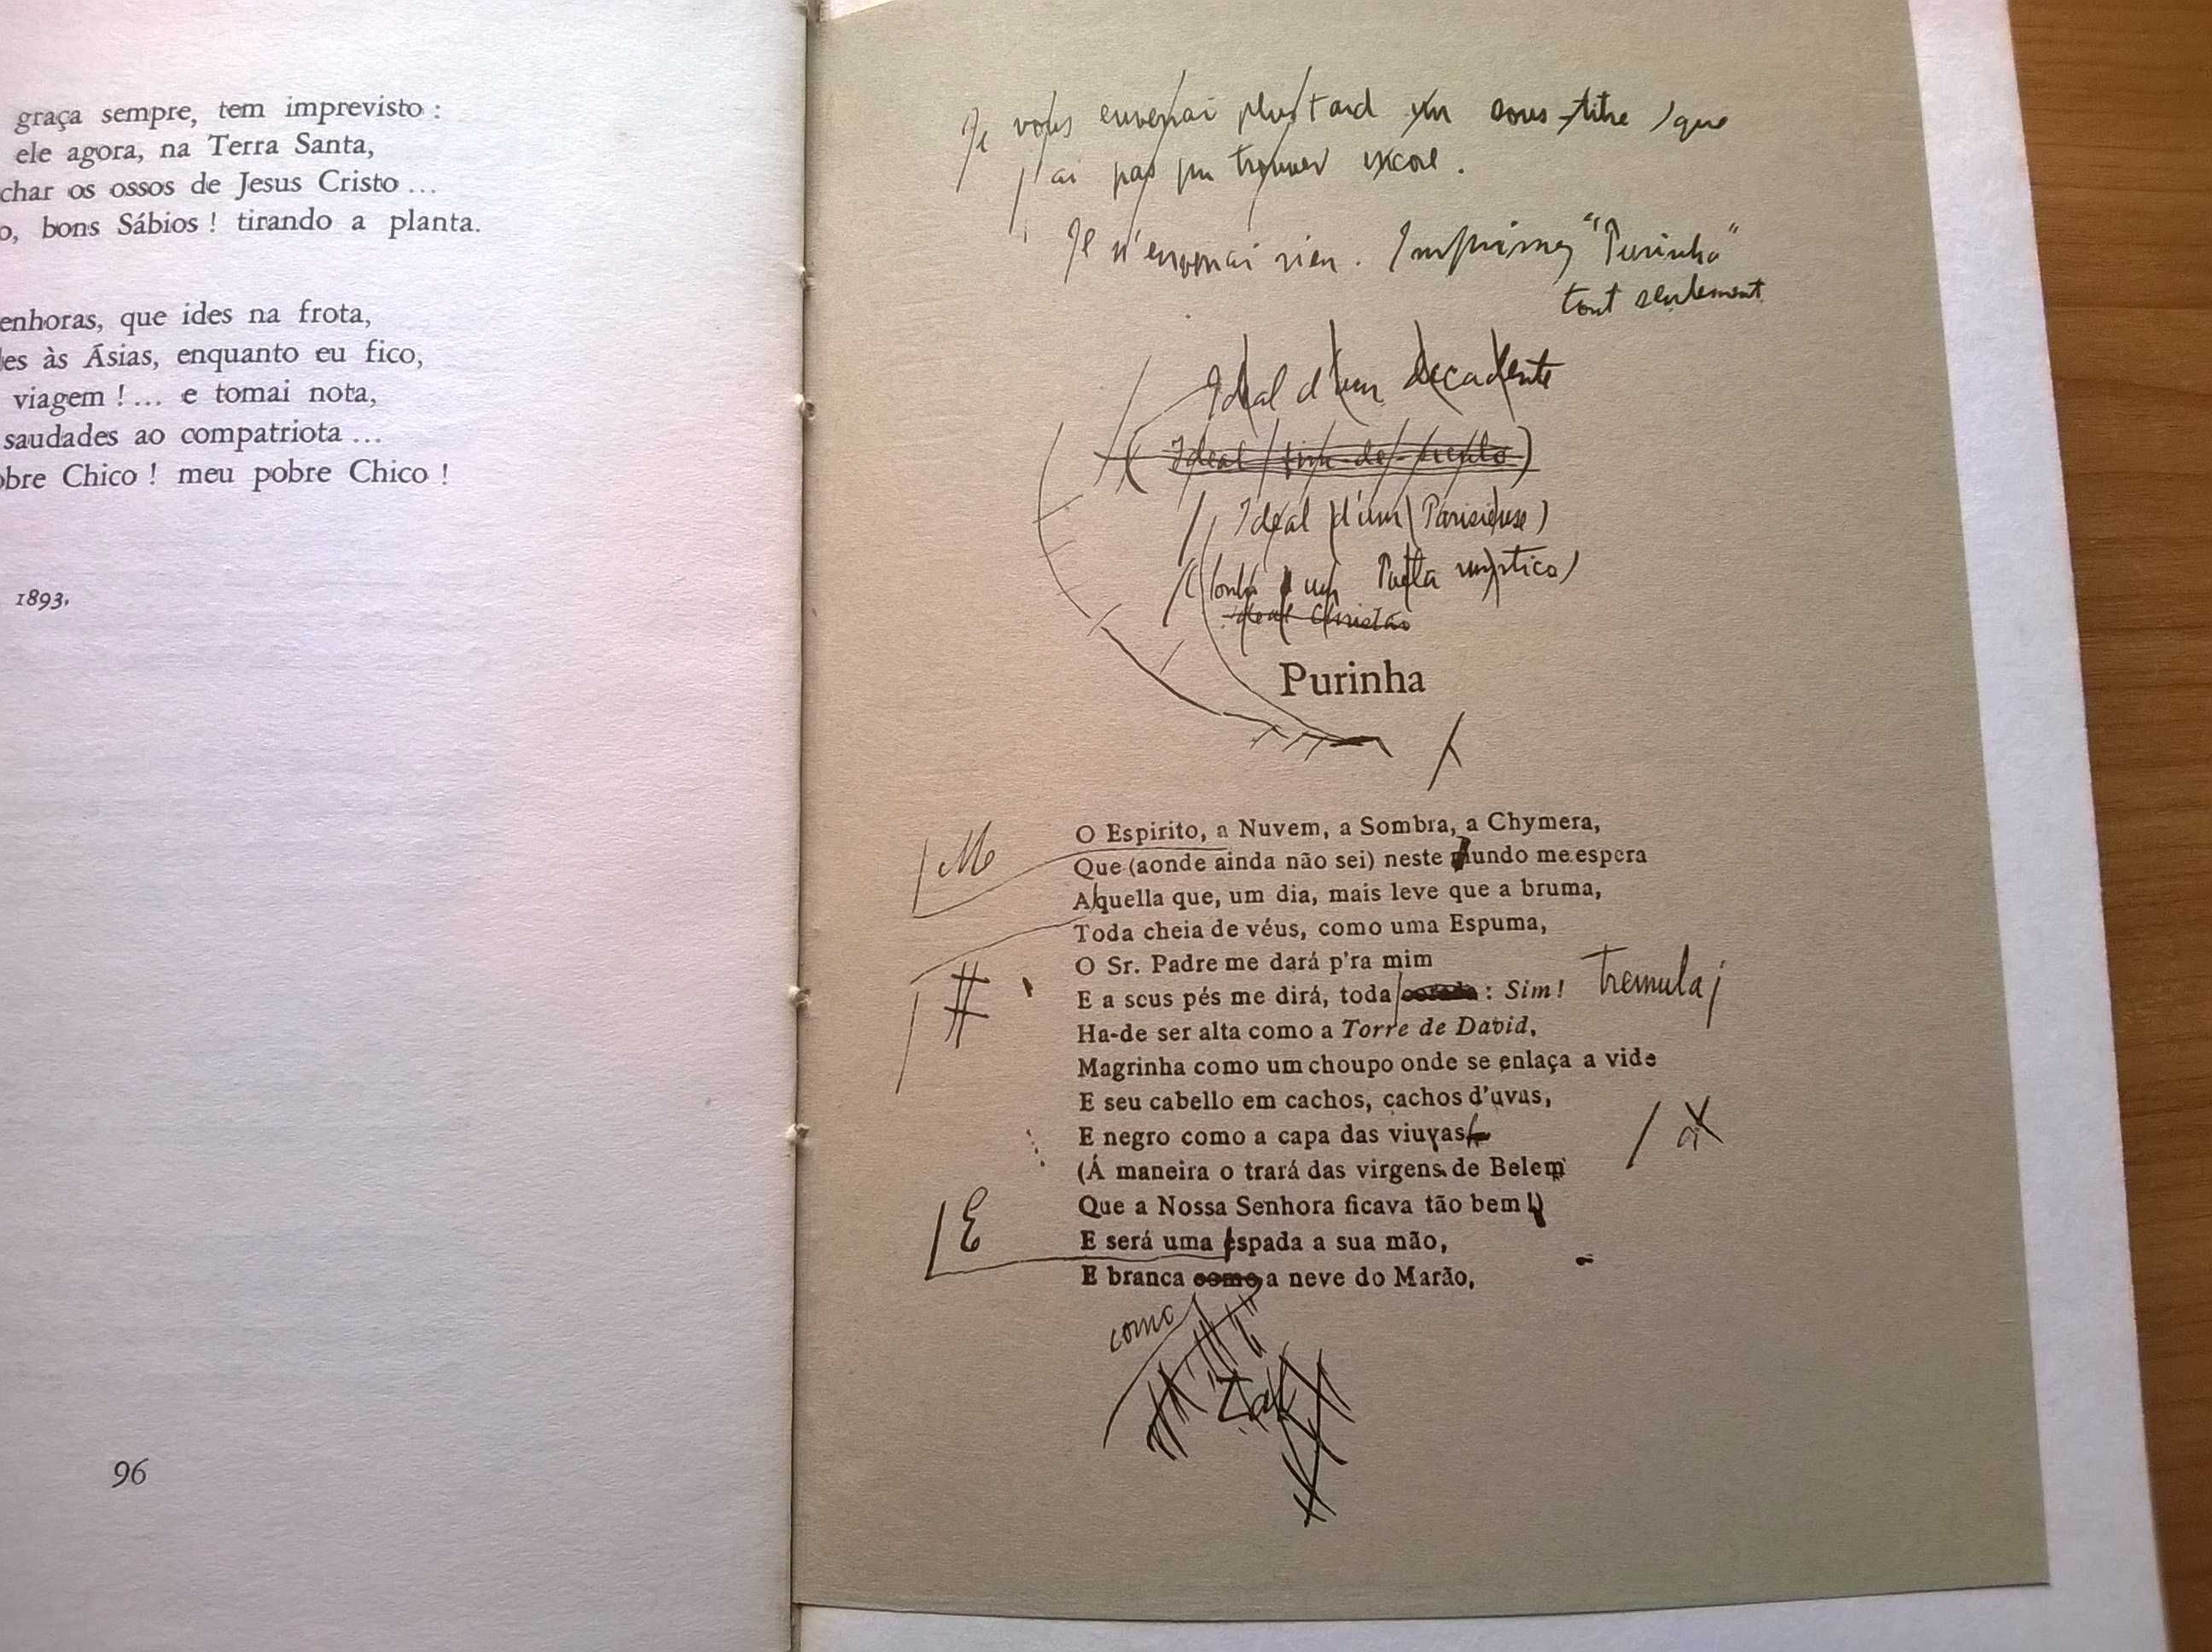 graça sempre, tem imprevisto :
ele agora, na Terra Santa,
char os ossos de Jesus Cristo ...
o, bons Sábios ! tirando a planta.
enhoras, que ides na frota,
des às Ásias, enquanto eu fico,
viagem ! ... e tomai nota,
saudades ao compatriota ...
obre Chico ! meu pobre Chico !
1893.
96
Je vous enverrai plus tard un sous-titre que
j'ai pas pu trouver encore.
Je n'enverrai rien. Imprimez "Purinha"
tout seulement
Ideal d'um decadente
(Ideal fim-de-seculo)
Ideal d'um Parisiense)
um Poeta mystico)
ideal Christão
Purinha
O Espirito, a Nuvem, a Sombra, a Chymera,
M
Que (aonde ainda não sei) neste mundo me espera
Aquella que, um dia, mais leve que a bruma,
Toda cheia de véus, como uma Espuma,
O Sr. Padre me dará p'ra mim
#
E a seus pés me dirá, toda corada : Sim! tremula
Ha-de ser alta como a Torre de David,
Magrinha como um choupo onde se enlaça a vide
E seu cabello em cachos, cachos d'uvas,
E negro como a capa das viuvas
(Á maneira o trará das virgens de Belem
Que a Nossa Senhora ficava tão bem!)
E
E será uma espada a sua mão,
E branca como a neve do Marão,
como